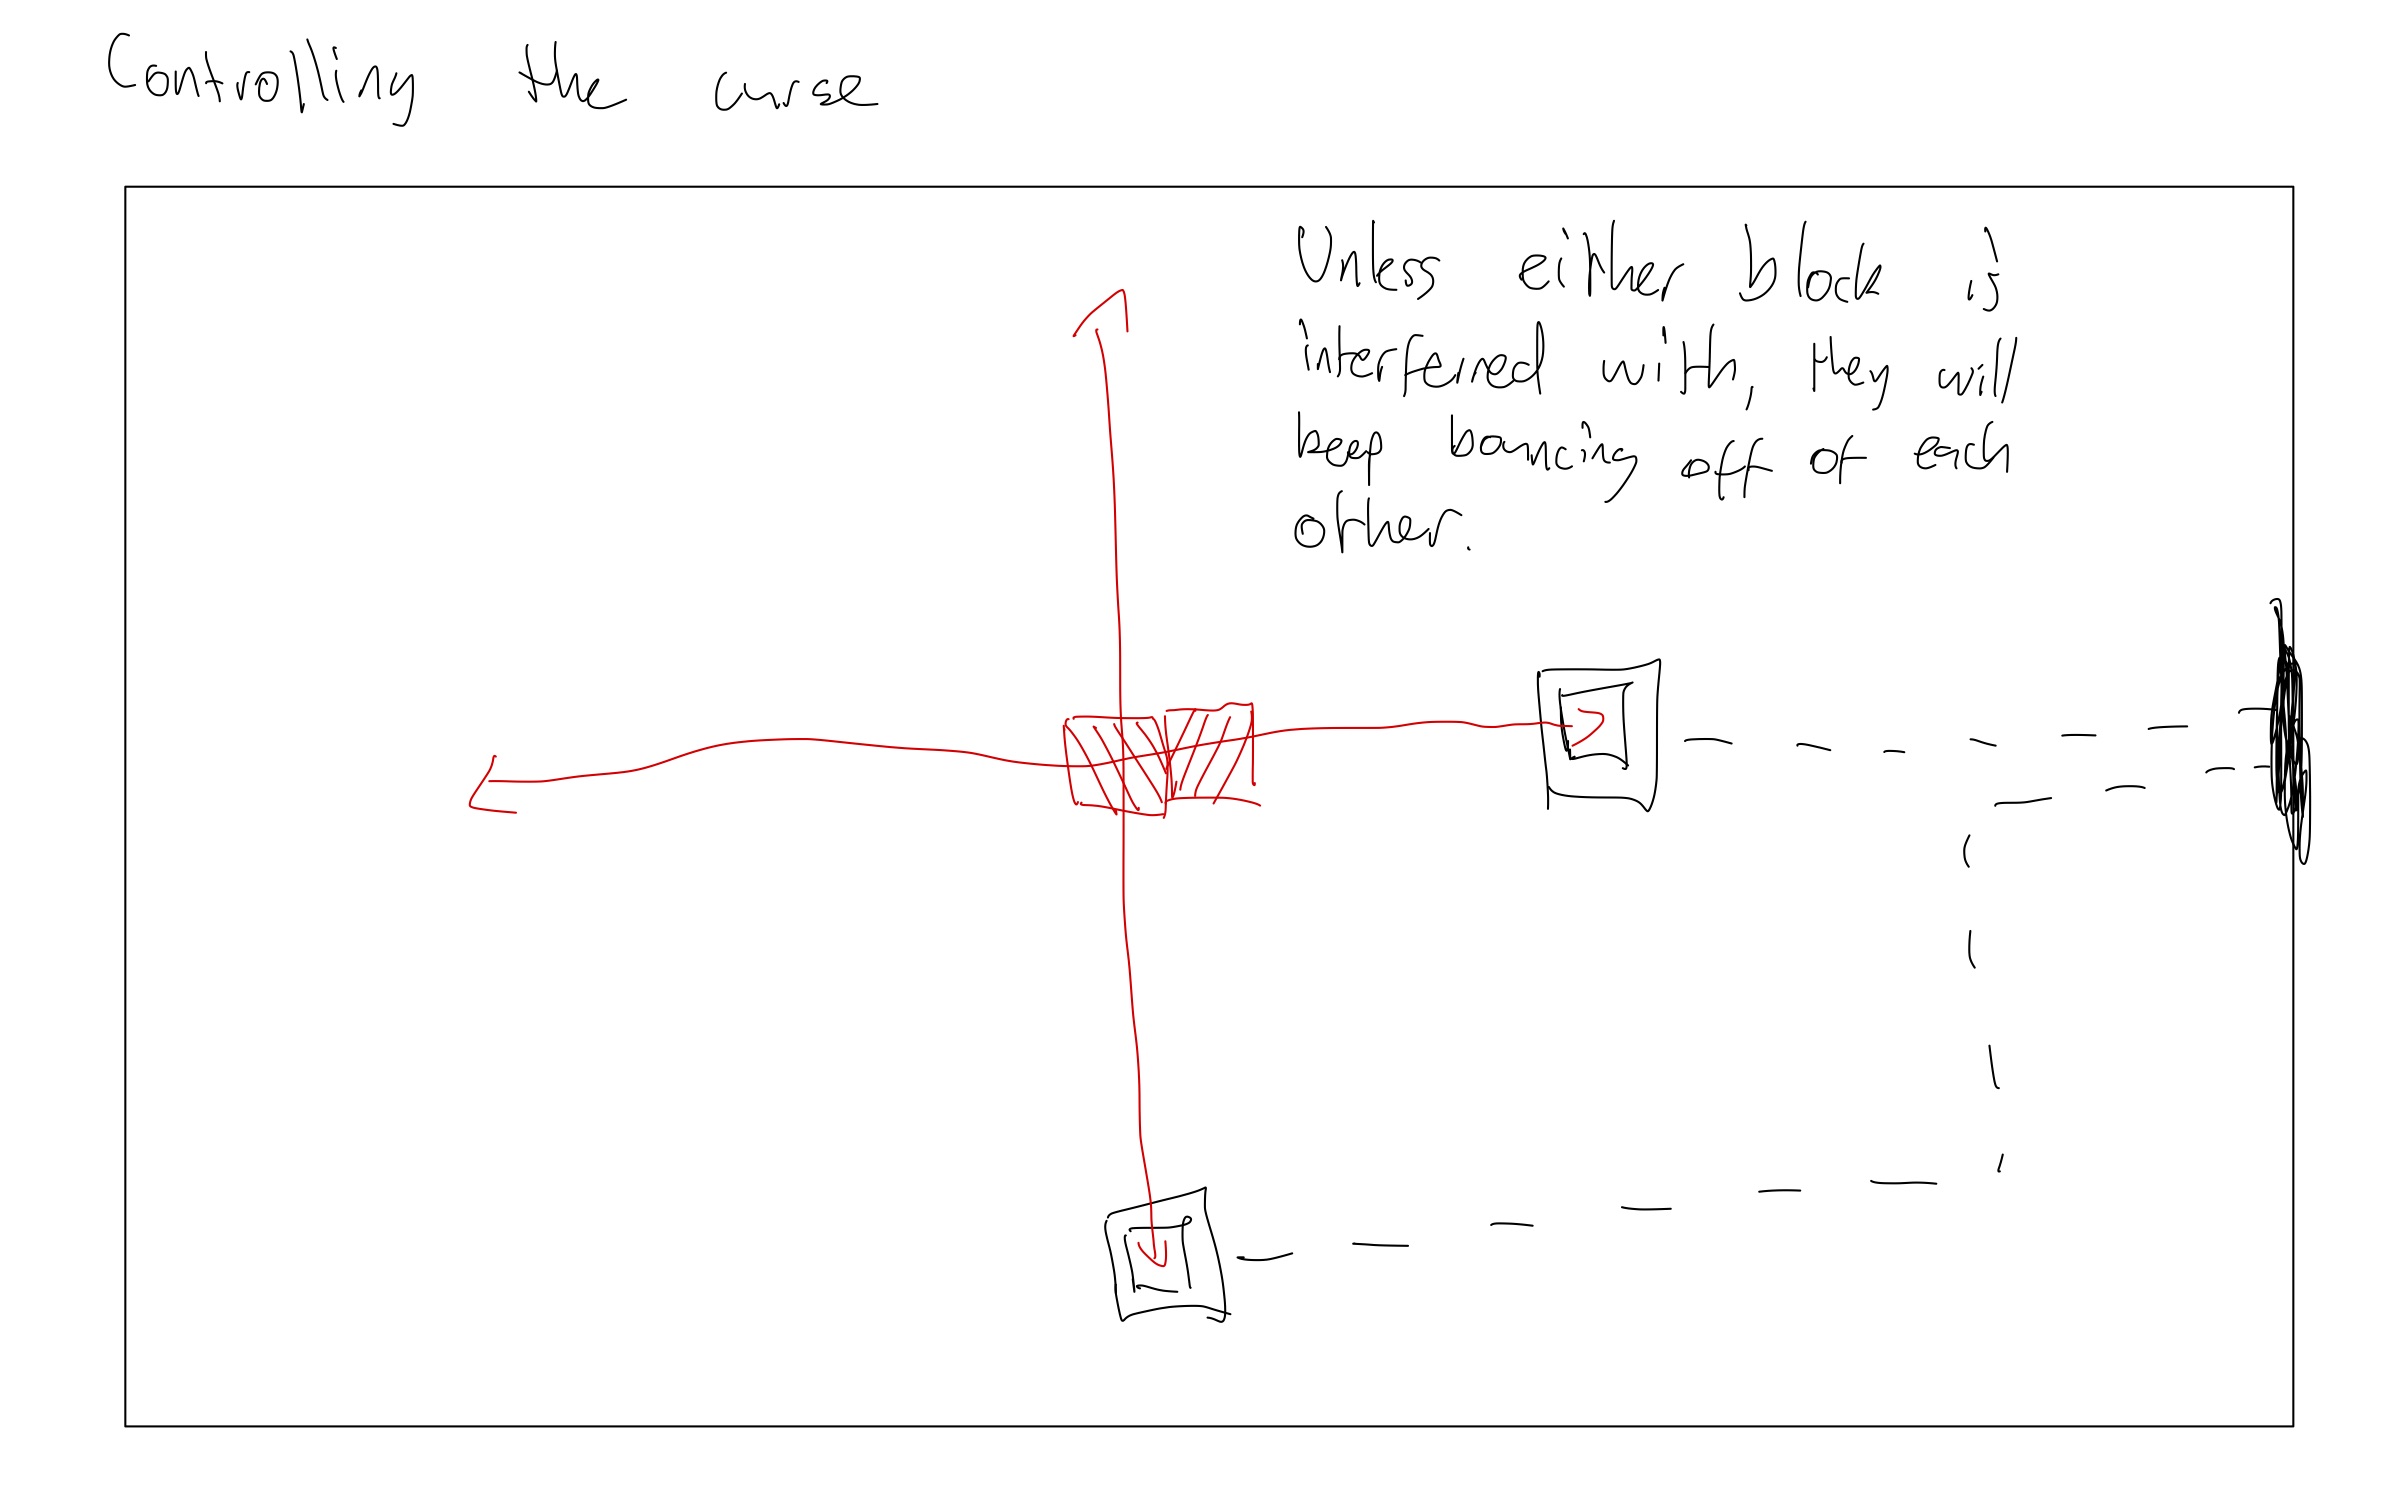 Controlling the curse
Unless either block is
interfered with, they will
keep bouncing off of each
other.